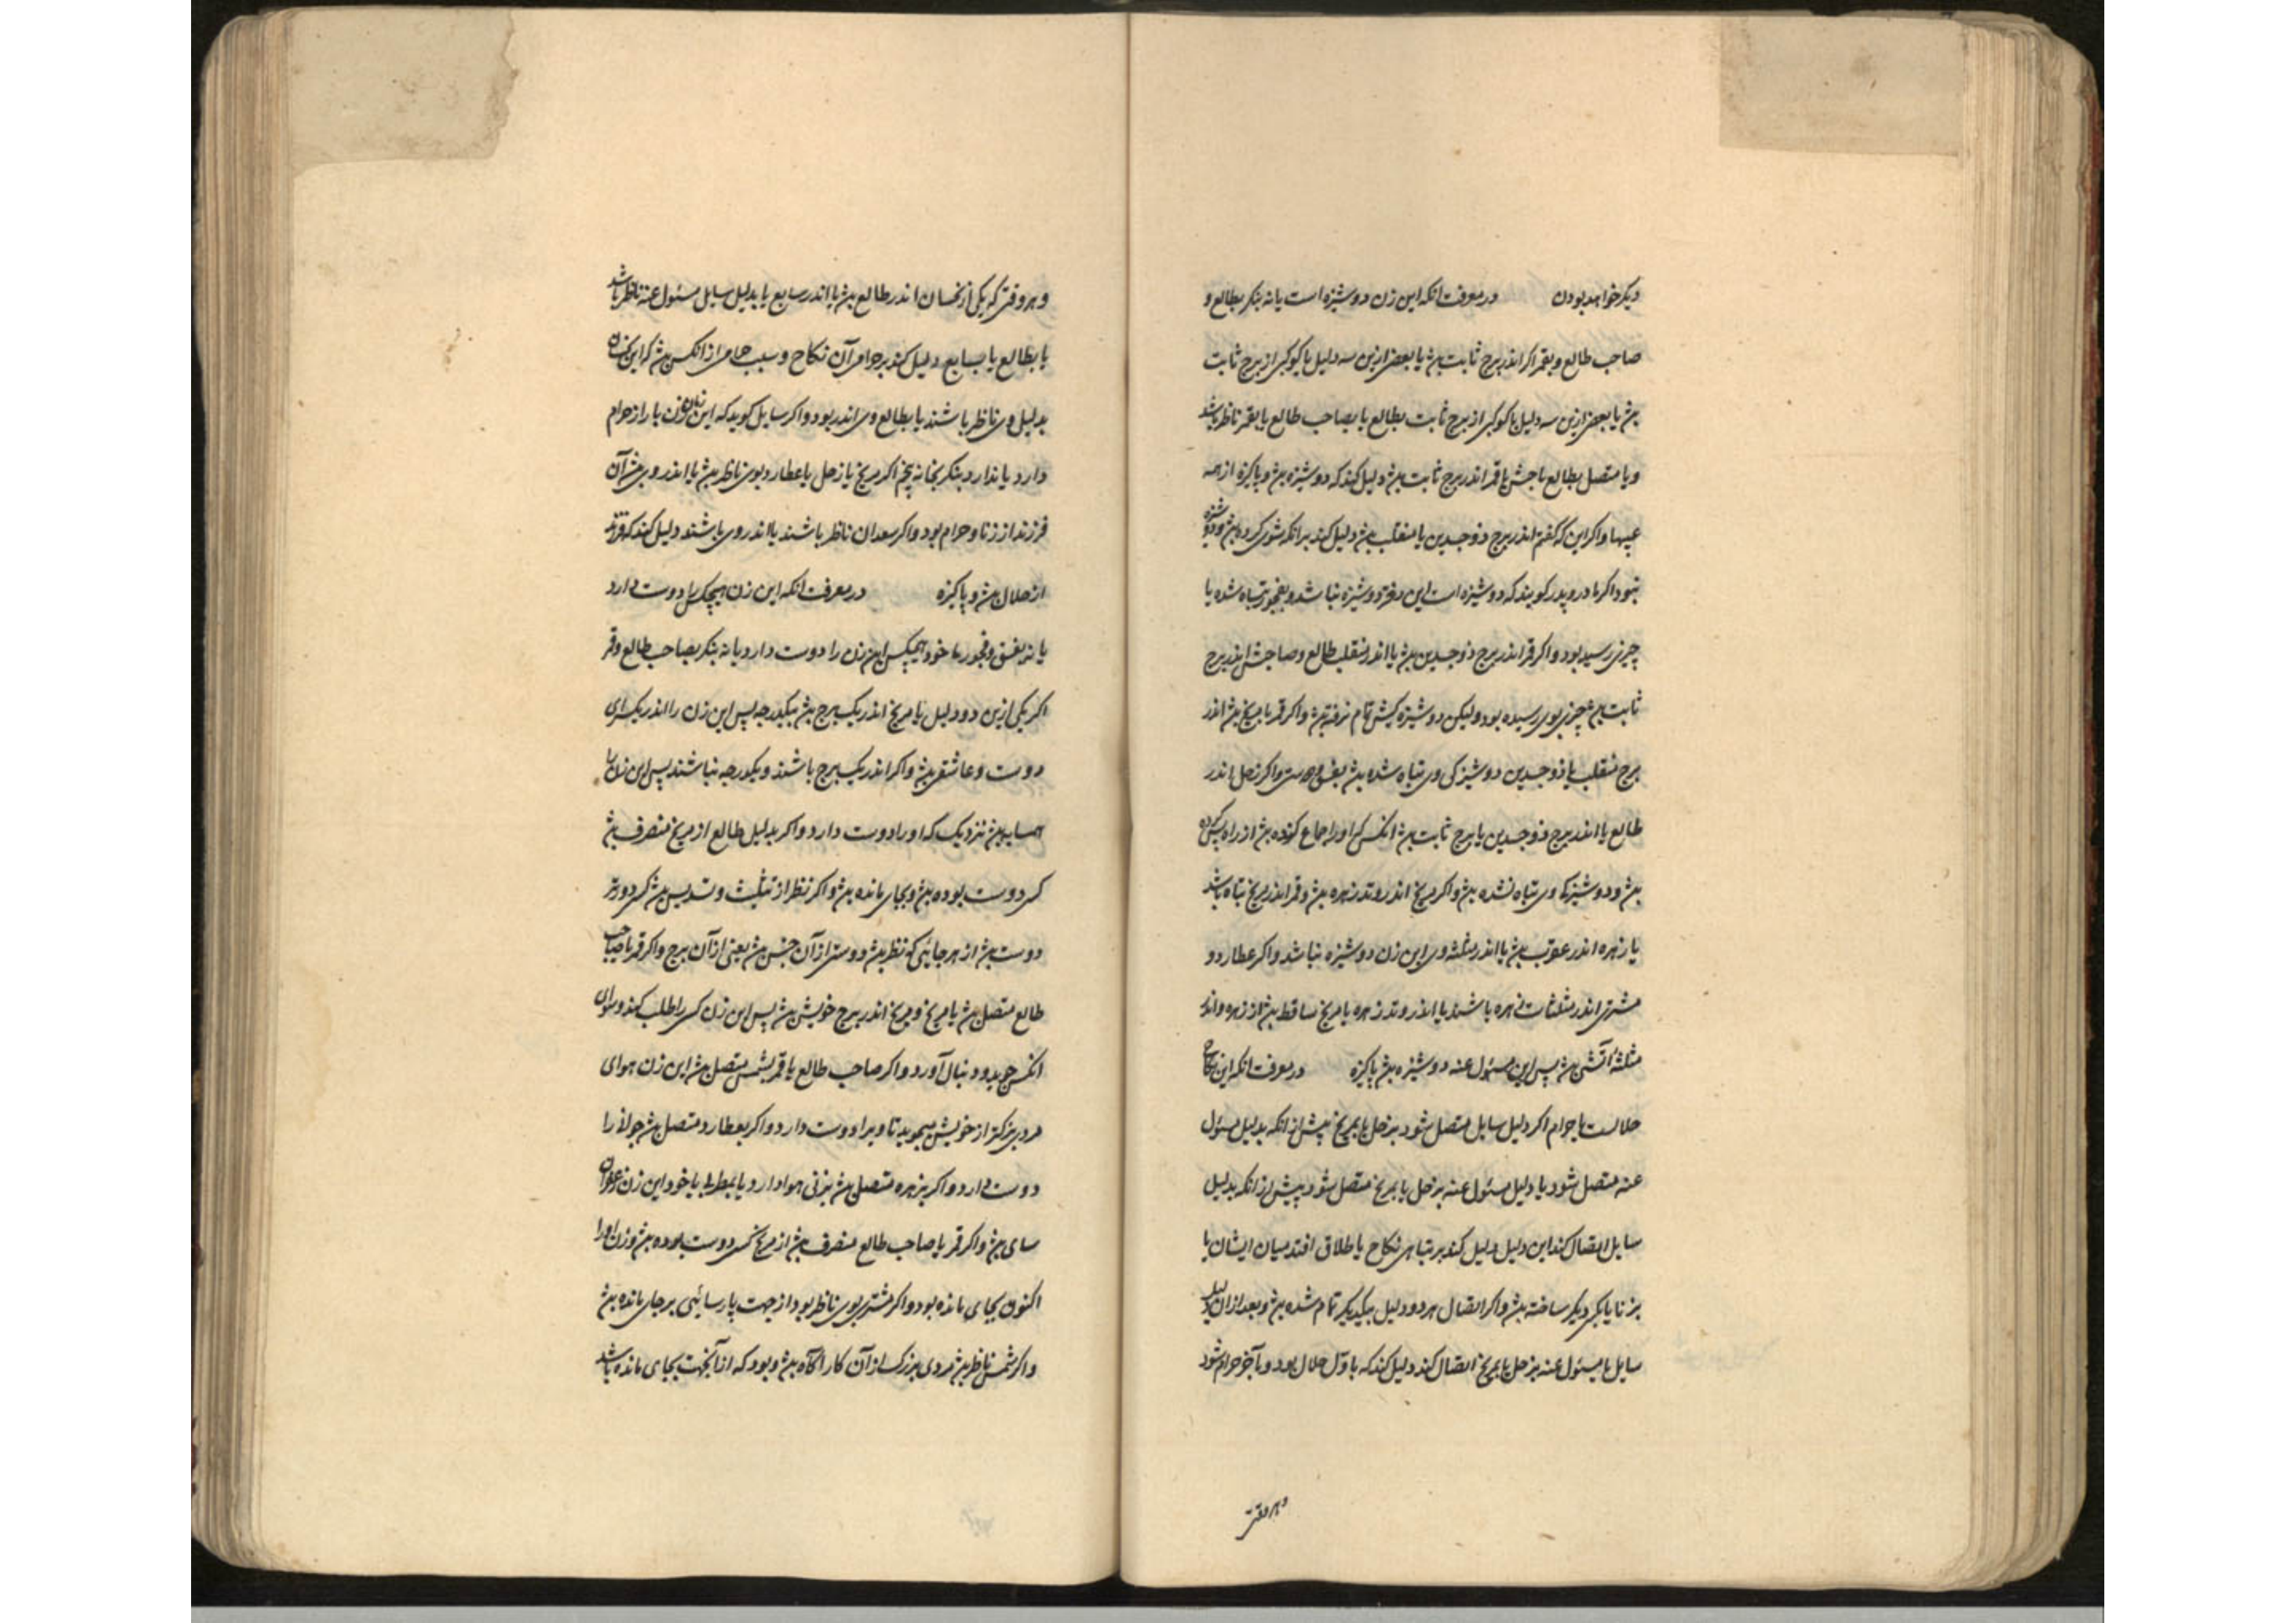 دیکر خواهد بودن در معرفت انکه این زن دوشیزه است یا نه بنکر بطالع و
صاحب طالع و بقمر اکر اندر برج ثابت بش یا بعضی ازین سه دلیل یا کوکبی از برج ثابت
بش یا بعضی ازین سه دلیل یا کوکبی از برج ثابت بطالع یا بصاحب طالع یا بقمر ناظر باشد
و یا متصل بطالع یا قمر اندر برج ثابت بش دلیل کند که دوشیزه بش و پاکیزه از همه
عیبها و اکر این که کفتم اندر برج ذوجسدین یا منقلب بش دلیل کند بر انکه شوی کرده بش و دوشیزه
نبود اکر مادر و پدر کویند که دوشیزه است این دختر دوشیزه نباشد و بفجور تباه شده یا
چیزی رسیده بود و اکر قمر اندر برج ذوجسدین بش یا اندر منقلب طالع و صاحبش اندر برج
ثابت بش چیزی بوی رسیده بود ولیکن دوشیزه کیش تمام نرفته بش و اکر قمر با مریخ بش اندر
برج منقلب یا ذوجسدین دوشیزکی وی تباه شده بش و اکر زحل اندر
طالع یا اندر برج ذوجسدین یا برج ثابت بش انکس که او را جماع کرده بش از راه پس کرده
بش و دوشیزکی وی تباه نشده بش و اکر مریخ اندر وتد زهره بش و قمر اندر مریخ تباه باشد
یا زهره اندر عقرب بش یا اندر مثلثه وی این زن دوشیزه نباشد و اکر عطارد و
مشتری اندر مثلثات زهره باشند یا اندر وتد زهره یا مریخ ساقط بش از زهره و اندر
مثلثه آتشی بش پس این مسئول عنه دوشیزه بش پاکیزه در معرفت انکه این نکاح
حلالست یا حرام اکر دلیل سایل متصل شود بزحل یا بمریخ پیش از انکه بدلیل مسئول
عنه متصل شود یا دلیل مسئول عنه بزحل یا بمریخ متصل شود پیش از انکه بدلیل
سایل اتصال کند این دلیل دلیل کند بر تباهی نکاح یا طلاق افتد میان ایشان یا
بزنا با یکی دیکر ساخته بش و اکر اتصال هر دو دلیل بیکدیکر تمام شده بش و بعد از ان دلیل
سایل یا مسئول عنه بزحل یا بمریخ اتصال کند دلیل کند که باول حلال بود و بآخر حرام شود
و هر وقتی
و هر وقتی که یکی از نحسان اندر طالع بش یا اندر سابع یا بدلیل سایل مسئول عنه ناظر باشد
یا بطالع یا بسابع دلیل کند بر حرامی آن نکاح و سبب حرامی از انکس بش که این نحسان
بدلیل وی ناظر باشند یا بطالع وی اندر بود و اکر سایل کوید که این زن بار از حرام
دارد یا ندارد بنکر بخانه پنجم اکر مریخ یا زحل یا عطارد بوی ناظر بش یا اندر وی بش آن
فرزند از زنا و حرام بود و اکر سعدان ناظر باشند یا اندر وی باشند دلیل کند که فرزند
از حلال بش و پاکیزه در معرفت انکه این زن هیچکس را دوست دارد
یا نه بفسق و فجور یا خود هیچکس این زن را دوست دارد یا نه بنکر بصاحب طالع و قمر
اکر یکی ازین دو دلیل با مریخ اندر یک برج بش بیکدرجه پس این زن را اندر یک سرای
دوست و عاشق بش و اکر اندر یک برج باشند و یکدرجه نباشند پس این زن را
همسایه بش نزدیک که او را دوست دارد و اکر بدلیل طالع از مریخ منصرف بش
کسی دوست بوده بش و بجای مانده بش و اکر نظر از تثلیث و تسدیس بش کسی دورتر
دوست بش از هر جائی که نظر بش دوستی از آن جنس بش یعنی از آن برج و اکر قمر یا صاحب
طالع متصل بش با مریخ و مریخ اندر برج خویش بش پس این زن کسی را طلب کند و سرای
انکس جوید و دنبال آورد و اکر صاحب طالع یا قمر بشمس متصل بش این زن هوای
مردی بزرکتر از خویش میجوید تا ویرا دوست دارد و اکر بعطارد متصل بش جوانی را
دوست دارد و اکر بزهره متصل بش بزنی هوا دارد یا بمطربی یا خود این زن
سای بش و اکر قمر یا صاحب طالع منصرف بش از مریخ کسی دوست بوده بش و زن او را
اکنون بجای مانده بود و اکر مشتری بوی ناظر بود از جهت پارسائی بر جای مانده بش
و اکر شمس ناظر بش مردی بزرک از آن کار آکاه بش و بود که از آنجهت بجای مانده باشد